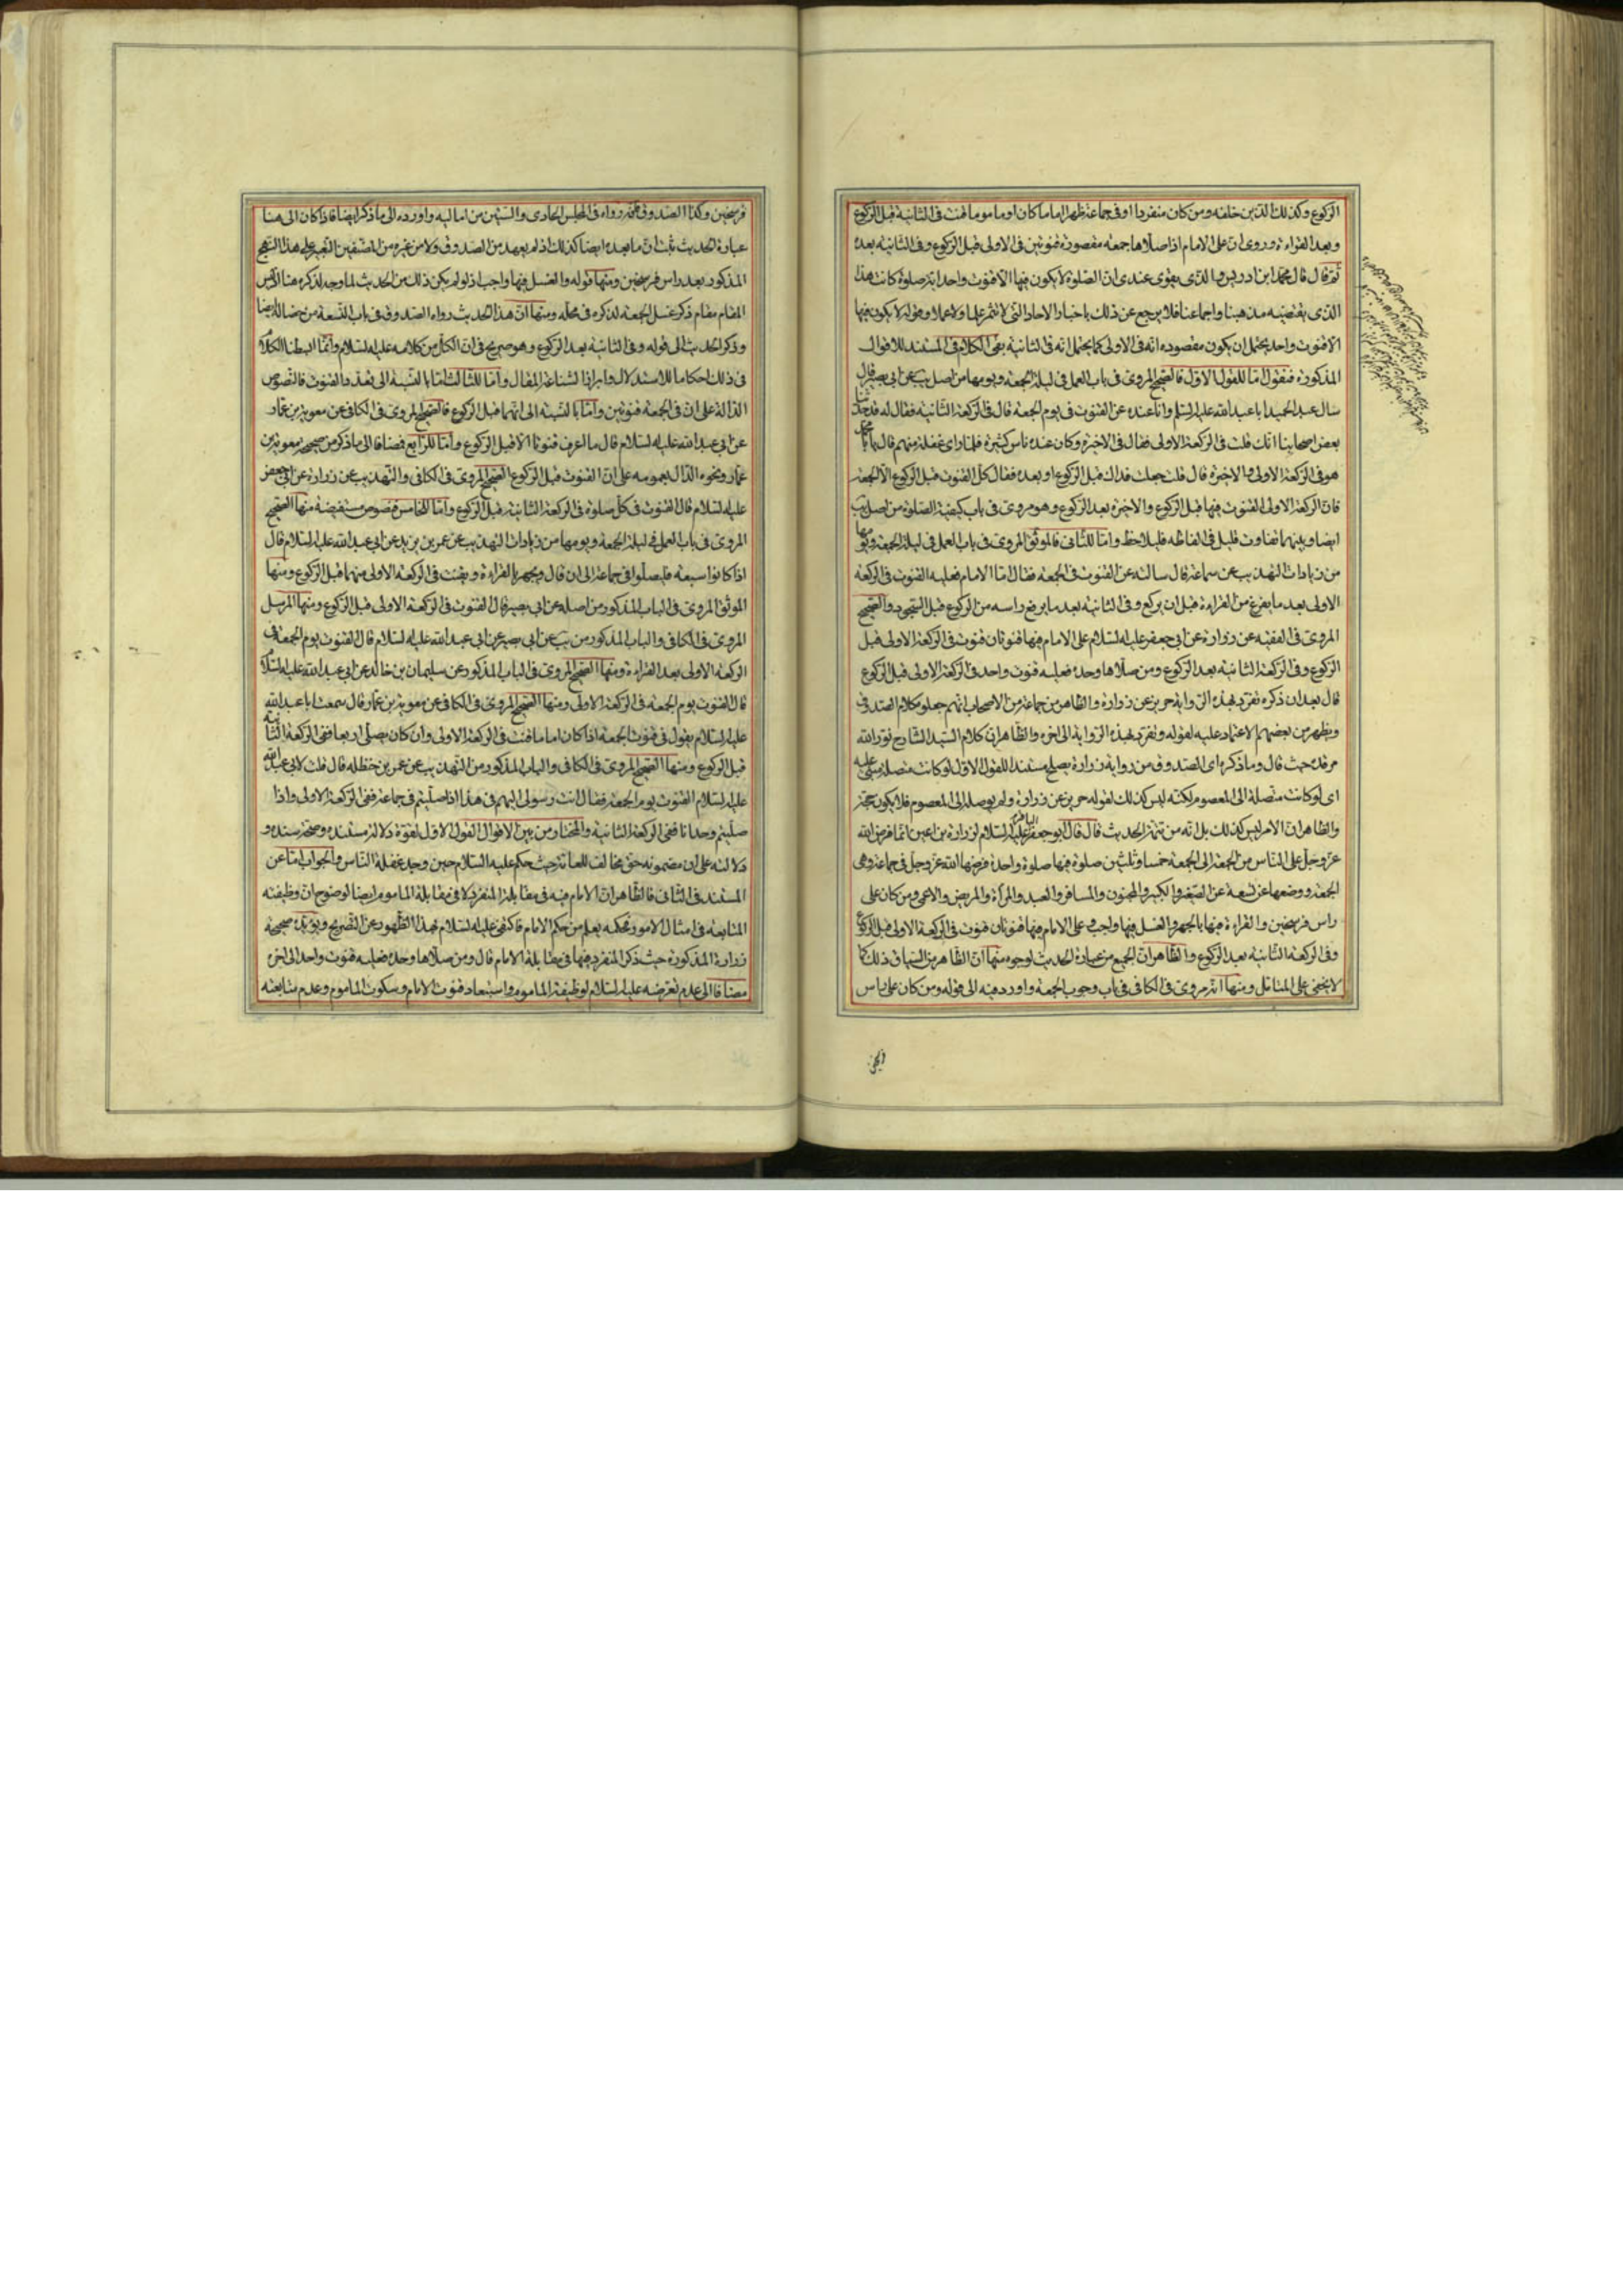 الركوع وكذلك الذين خلفه ومن كان منفردا او في جماعة ظهرا اماما كان او ماموما قنت في الثانية قبل الركوع
وبعد القراءة وروى ان على الامام اذا صلاها جمعة مقصورة قنوتين في الاولى قبل الركوع وفى الثانية بعده
ثم قال قال محمد ابن ادريس والذى يقوى عندى ان الصلوة لا يكون فيها الا قنوت واحد اية صلوة كانت هذا
الذى يقتضيه مذهبنا واجماعنا فلا يرجع عن ذلك باخبار الاحاد التى لا تثمر علما ولا عملا وقوله لا يكون فيها
الا قنوت واحد يحتمل ان يكون مقصوده انه في الاولى كما يحتمل انه في الثانية بقى الكلام في المستند للاقوال
المذكورة فنقول اما للقول الاول فالصحيح المروى في باب العمل في ليلة الجمعة ويومها من اصل يب عن ابى بصير قال
سال عبد الحميد ابا عبد الله عليه السلم وانا عنده عن القنوت في يوم الجمعة قال في الركعة الثانية فقال له قد حدثنا
بعض اصحابنا انك قلت في الركعة الاولى فقال في الاخيرة وكان عنده ناس كثيرة فلما راى غفلة منهم قال يا ابا محمد
هو في الركعة الاولى والاخيرة قال قلت جعلت فداك قبل الركوع او بعده فقال كل القنوت قبل الركوع الا الجمعة
فان الركعة الاولى القنوت فيها قبل الركوع والاخيرة بعد الركوع وهو مروى في باب كيفية الصلوة من اصل يب
ايضا وبينهما تفاوت قليل في الفاظه فليلاحظ واما للثانى فالموثق المروى في باب العمل في ليلة الجمعة ويومها
من زيادات التهذيب عن سماعة قال سالته عن القنوت في الجمعة فقال اما الامام فعليه القنوت في الركعة
الاولى بعد ما يفرغ من القراءة قبل ان يركع وفى الثانية بعد ما يرفع راسه من الركوع قبل السجود والصحيح
المروى في الفقيه عن زرارة عن ابى جعفر عليه السلام على الامام فيها قنوتان قنوت في الركعة الاولى قبل
الركوع وفى الركعة الثانية بعد الركوع ومن صلاها وحده فعليه قنوت واحد في الركعة الاولى قبل الركوع
قال بعد ان ذكره تفرد بهذه الرواية حريز عن زرارة والظاهر من جماعة من الاصحاب انهم جعلوه كلام الصدوق
ويظهر من بعضهم الاعتماد عليه لقوله وتفرد بهذه الرواية الى اخره والظاهر ان كلام السيد الشارح نور الله
مرقده حيث قال وما ذكره اى الصدوق من رواية زرارة يصلح مستندا للقول الاول لو كانت متصلة مبنى عليه
اى لو كانت متصلة الى المعصوم لكنه ليس كذلك لقوله حريز عن زرارة ولم يوصله الى المعصوم فلا يكون حجة
والظاهر ان الامر ليس كذلك بل انه من تتمة الحديث قال قال ابو جعفر الباقر عليه السلام لزرارة بن اعين انما فرض الله
عز وجل على الناس من الجمعة الى الجمعة خمسا وثلثين صلوة فيها صلوة واحدة فرضها الله عز وجل في جماعة وهى
الجمعة ووضعها عن تسعة عن الصغير والكبير والمجنون والمسافر والعبد والمراة والمريض والاعمى ومن كان على
راس فرسخين والقراءة فيها بالجهر والغسل فيها واجب وعلى الامام فيها قنوتان قنوت في الركعة الاولى قبل الركوع
وفى الركعة الثانية بعد الركوع والظاهر ان الجميع من عبارة الحديث لوجوه منها ان الظاهر من السياق ذلك كما
لا يخفى على المتامل ومنها انه مروى في الكافى في باب وجوب الجمعة واورد فيه الى قوله ومن كان على راس
فرسخين وكذا الصدوق فانه رواه في المجلس الحادى والستين من اماليه واورده الى ما ذكر ايضا فاذا كان الى هنا
عبارة الحديث ثبت ان ما بعده ايضا كذلك اذ لم يعهد من الصدوق ولا من غيره من المصنفين التعبير على هذا النهج
المذكور بعد راس فرسخين ومنها قوله والغسل فيها واجب اذ لو لم يكن ذلك من الحديث لما وجه لذكره هنا اذ ليس
المقام مقام ذكر غسل الجمعة لذكره في محله ومنها ان هذا الحديث رواه الصدوق في باب التسعة من خصاله ايضا
وذكر الحديث الى قوله وفى الثانية بعد الركوع وهو صريح في ان الكل من كلامه عليه السلام وانما ابسطنا الكلام
في ذلك احكاما للاستدلال وابرازا لشناعة المقال واما للثالث اما بالنسبة الى تعدد القنوت فالنصوص
الدالة على ان في الجمعة قنوتين واما بالنسبة الى انهما قبل الركوع فالصحيح المروى في الكافى عن معوية بن عمار
عن ابى عبد الله عليه السلام قال ما اعرف قنوتا الا قبل الركوع واما للرابع فمضافا الى ما ذكر من صحيحة معوية بن
عمار ونحوه الدال بعمومه على ان القنوت قبل الركوع الصحيح المروى في الكافى والتهذيب عن زرارة عن ابى جعفر
عليه السلام قال القنوت في كل صلوة في الركعة الثانية قبل الركوع واما للخامس فنصوص مستفيضة منها الصحيح
المروى في باب العمل في ليلة الجمعة ويومها من زيادات التهذيب عن عمر بن يزيد عن ابى عبد الله عليه السلام قال
اذا كانوا سبعة فليصلوا في جماعة الى ان قال ويجهر بالقراءة ويقنت في الركعة الاولى منهما قبل الركوع ومنها
الموثق المروى في الباب المذكور من اصله عن ابى بصير قال القنوت في الركعة الاولى قبل الركوع ومنها المرسل
المروى في الكافى والباب المذكور من يب عن ابى بصير عن ابى عبد الله عليه السلام قال القنوت يوم الجمعة في
الركعة الاولى بعد القراءة ومنها الصحيح المروى في الباب المذكور عن سليمان بن خالد عن ابى عبد الله عليه السلام
قال القنوت يوم الجمعة في الركعة الاولى ومنها الصحيح المروى في الكافى عن معوية بن عمار قال سمعت ابا عبد الله
عليه السلام يقول في قنوت الجمعة اذا كان اماما قنت في الركعة الاولى وان كان يصلى اربعا ففى الركعة الثانية
قبل الركوع ومنها الصحيح المروى في الكافى والباب المذكور من التهذيب عن عمر بن حنظلة قال قلت لابى عبد الله
عليه السلام القنوت يوم الجمعة فقال انت رسولى اليهم في هذا اذا صليتم في جماعة ففى الركعة الاولى واذا
صليتم وحدانا ففى الركعة الثانية والمختار من بين الاقوال القول الاول لقوة دلالة مستنده وصحة سنده و
دلالته على ان مضمونه حق مخالف للعامة حيث حكم عليه السلام حين وجد غفلة الناس والجواب اما عن
المستند في الثانى فالظاهر ان الامام فيه في مقابلة المنفرد لا في مقابلة الماموم ايضا لوضوح ان وظيفته
المتابعة في امثال الامور فحكمه يعلم من حكم الامام فاكتفى عليه السلام بهذا الظهور عن التصريح ويؤيده صحيحة
زرارة المذكورة حيث ذكر المنفرد فيها في مقابلة الامام قال ومن صلاها وحده فعليه قنوت واحد الى اخره
مضافا الى عدم تعرضه عليه السلام لوظيفة الماموم واستبعاد قنوت الامام وسكوت الماموم وعدم متابعته